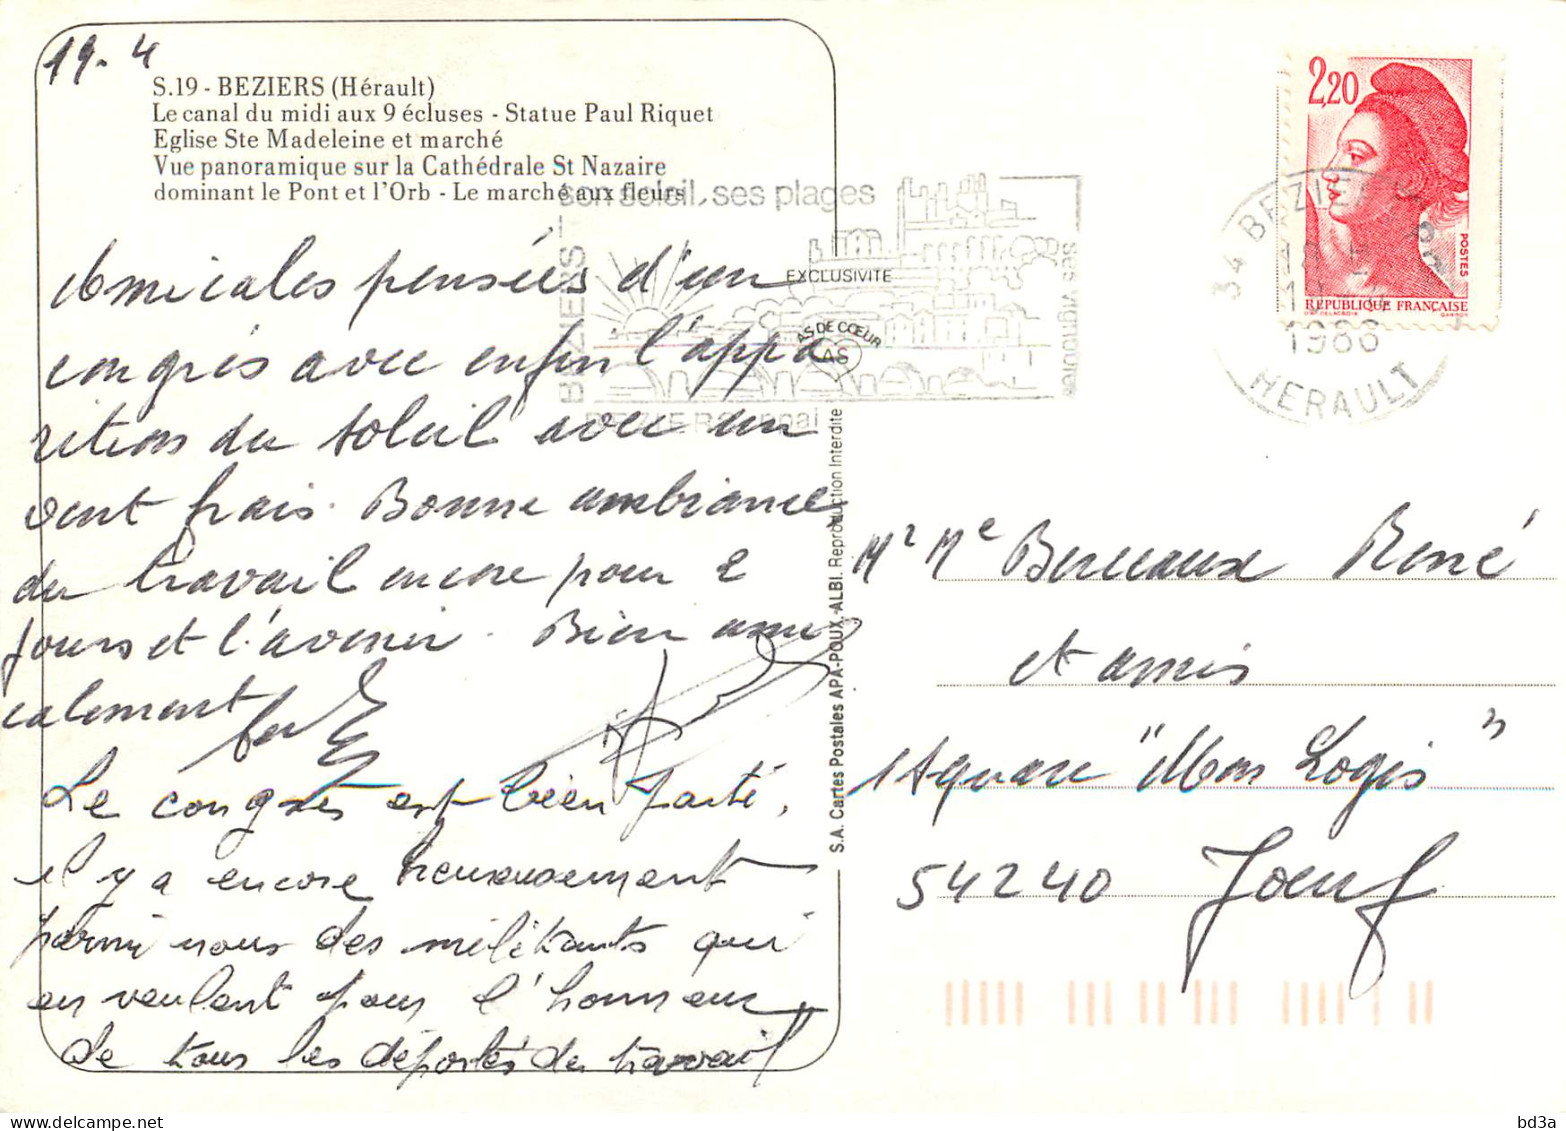 19.4
S.19 - BEZIERS (Hérault)
Le canal du midi aux 9 écluses - Statue Paul Riquet
Eglise Ste Madeleine et marché
Vue panoramique sur la Cathédrale St Nazaire
dominant le Pont et l'Orb - Le marché aux fleurs
Amicales pensées d'un
congrès avec enfin l'appa
rition du soleil avec un
vent frais. Bonne ambiance
du travail encore pour 2
jours et l'avenir. Bien ami
calement
Le congrès est bien parti,
il y a encore heureusement
parmi nous des militants qui
en veulent pour l'honneur
de tous les déportés du travail
son soleil, ses plages
BEZIERS
ses vignobles
BEZIERS
EXCLUSIVITE
AS DE CŒUR
AS
S.A. Cartes Postales APA-POUX - ALBI. Reproduction Interdite
2,20
POSTES
REPUBLIQUE FRANÇAISE
34 BEZIERS
1988
HERAULT
Mr Me Berceaux René
et amis
1 square "Mon Logis"
54240 Joeuf
bd3a